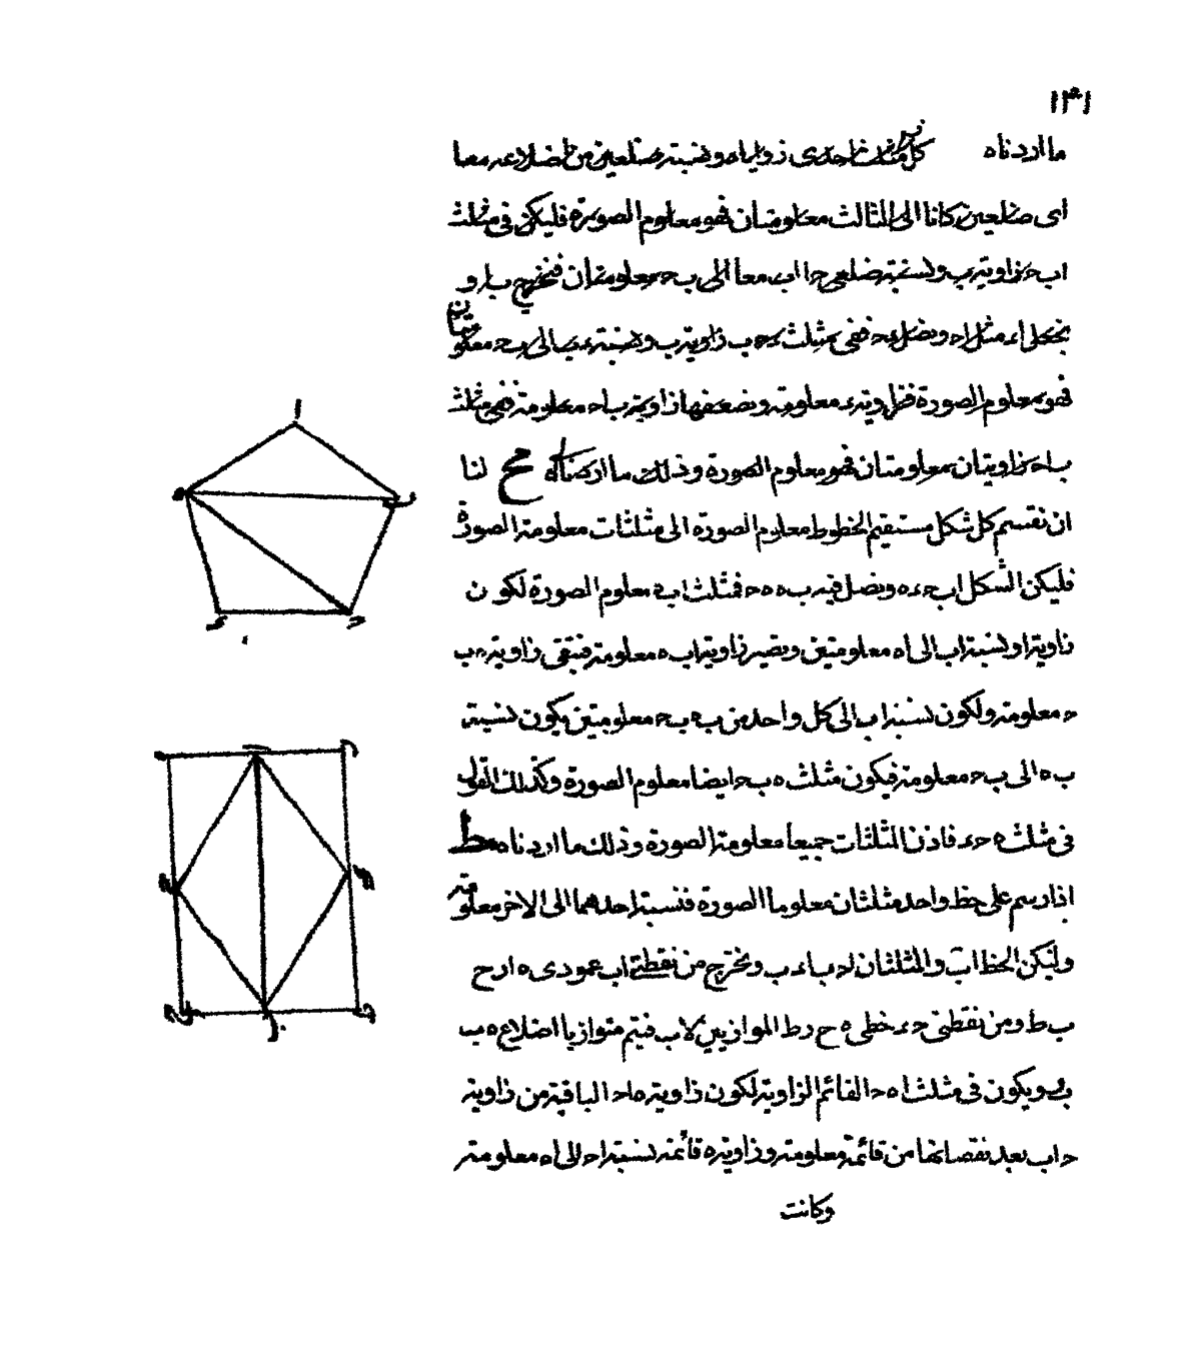 ١٣١
ما اردناه كل مثلث احدى زواياه ونسبة ضلعين من اضلاعه معا
اى ضلعين كانا الى الثالث معلومتان فهو معلوم الصورة فليكن فى مثلث
اب ح زاوية ب ونسبة ضلعى حا اب معا الى ب ح معلومتان فنخرج ب ا و
نجعل اء مثل اح ونصل ء ح ففى مثلث ء ح ب زاوية ب ونسبة ء ب الى ب ح معلومتان
فهو معلوم الصورة فزاوية ء معلومة وضعفها زاوية ب اح معلومة ففى مثلث
ب اح زاويتان معلومتان فهو معلوم الصورة وذلك ما اردناه مح لنا
ان نقسم كل شكل مستقيم الخطوط معلوم الصورة الى مثلثات معلومة الصورة
فليكن الشكل اب حء ه ونصل فيه ب ه ه ح فمثلث اب ه معلوم الصورة لكون
زاوية ا ونسبة اب الى اه معلومتين وتصير زاوية اب ه معلومة فتبقى زاوية ه ب
ح معلومة ولكون نسبة اب الى كل واحد من ب ه ب ح معلومتين يكون نسبة
ب ه الى ب ح معلومة فيكون مثلث ه ب ح ايضا معلوم الصورة وكذلك القول
فى مثلث ه حء فاذن المثلثات جميعا معلومة الصورة وذلك ما اردناه مط
اذا رسم على خط واحد مثلثان معلوما الصورة فنسبة احدهما الى الاخر معلومة
وليكن الخط اب والمثلثان اح ب اء ب ونخرج من نقطتى اب عمودى ه ار ح
ب ط ومن نقطتى حء خطى ه ح رط الموازيين لاب فيتم متوازيا اضلاع ه ب
ب ر ويكون فى مثلث اه ح القائم الزاوية لكون زاوية ه اح الباقية من زاوية
ح اب بعد نقصانها من قائمة معلومة وزاوية ه قائمة نسبة اح الى اه معلومة
وكانت
ا
ب
ه
ء
ح